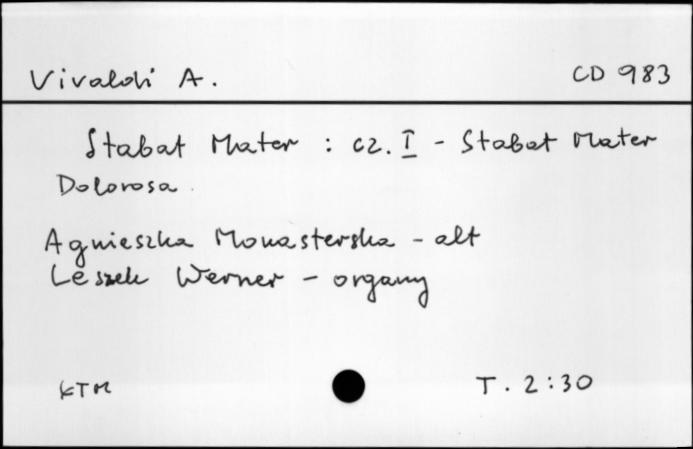 Vivaldi A. CD 983
Stabat Mater : cz. I - Stabat Mater
Dolorosa
Agnieszka Monasterska - alt
Leszek Werner - organy
KTM T. 2:30